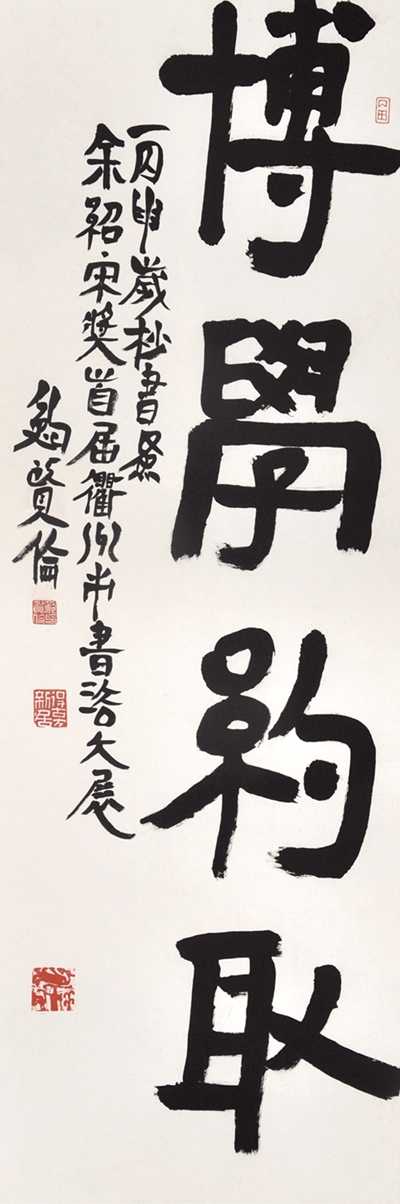 博學約取
丙申歲杪書展
余紹宋獎首届衢州市書法大展
鮑賢倫